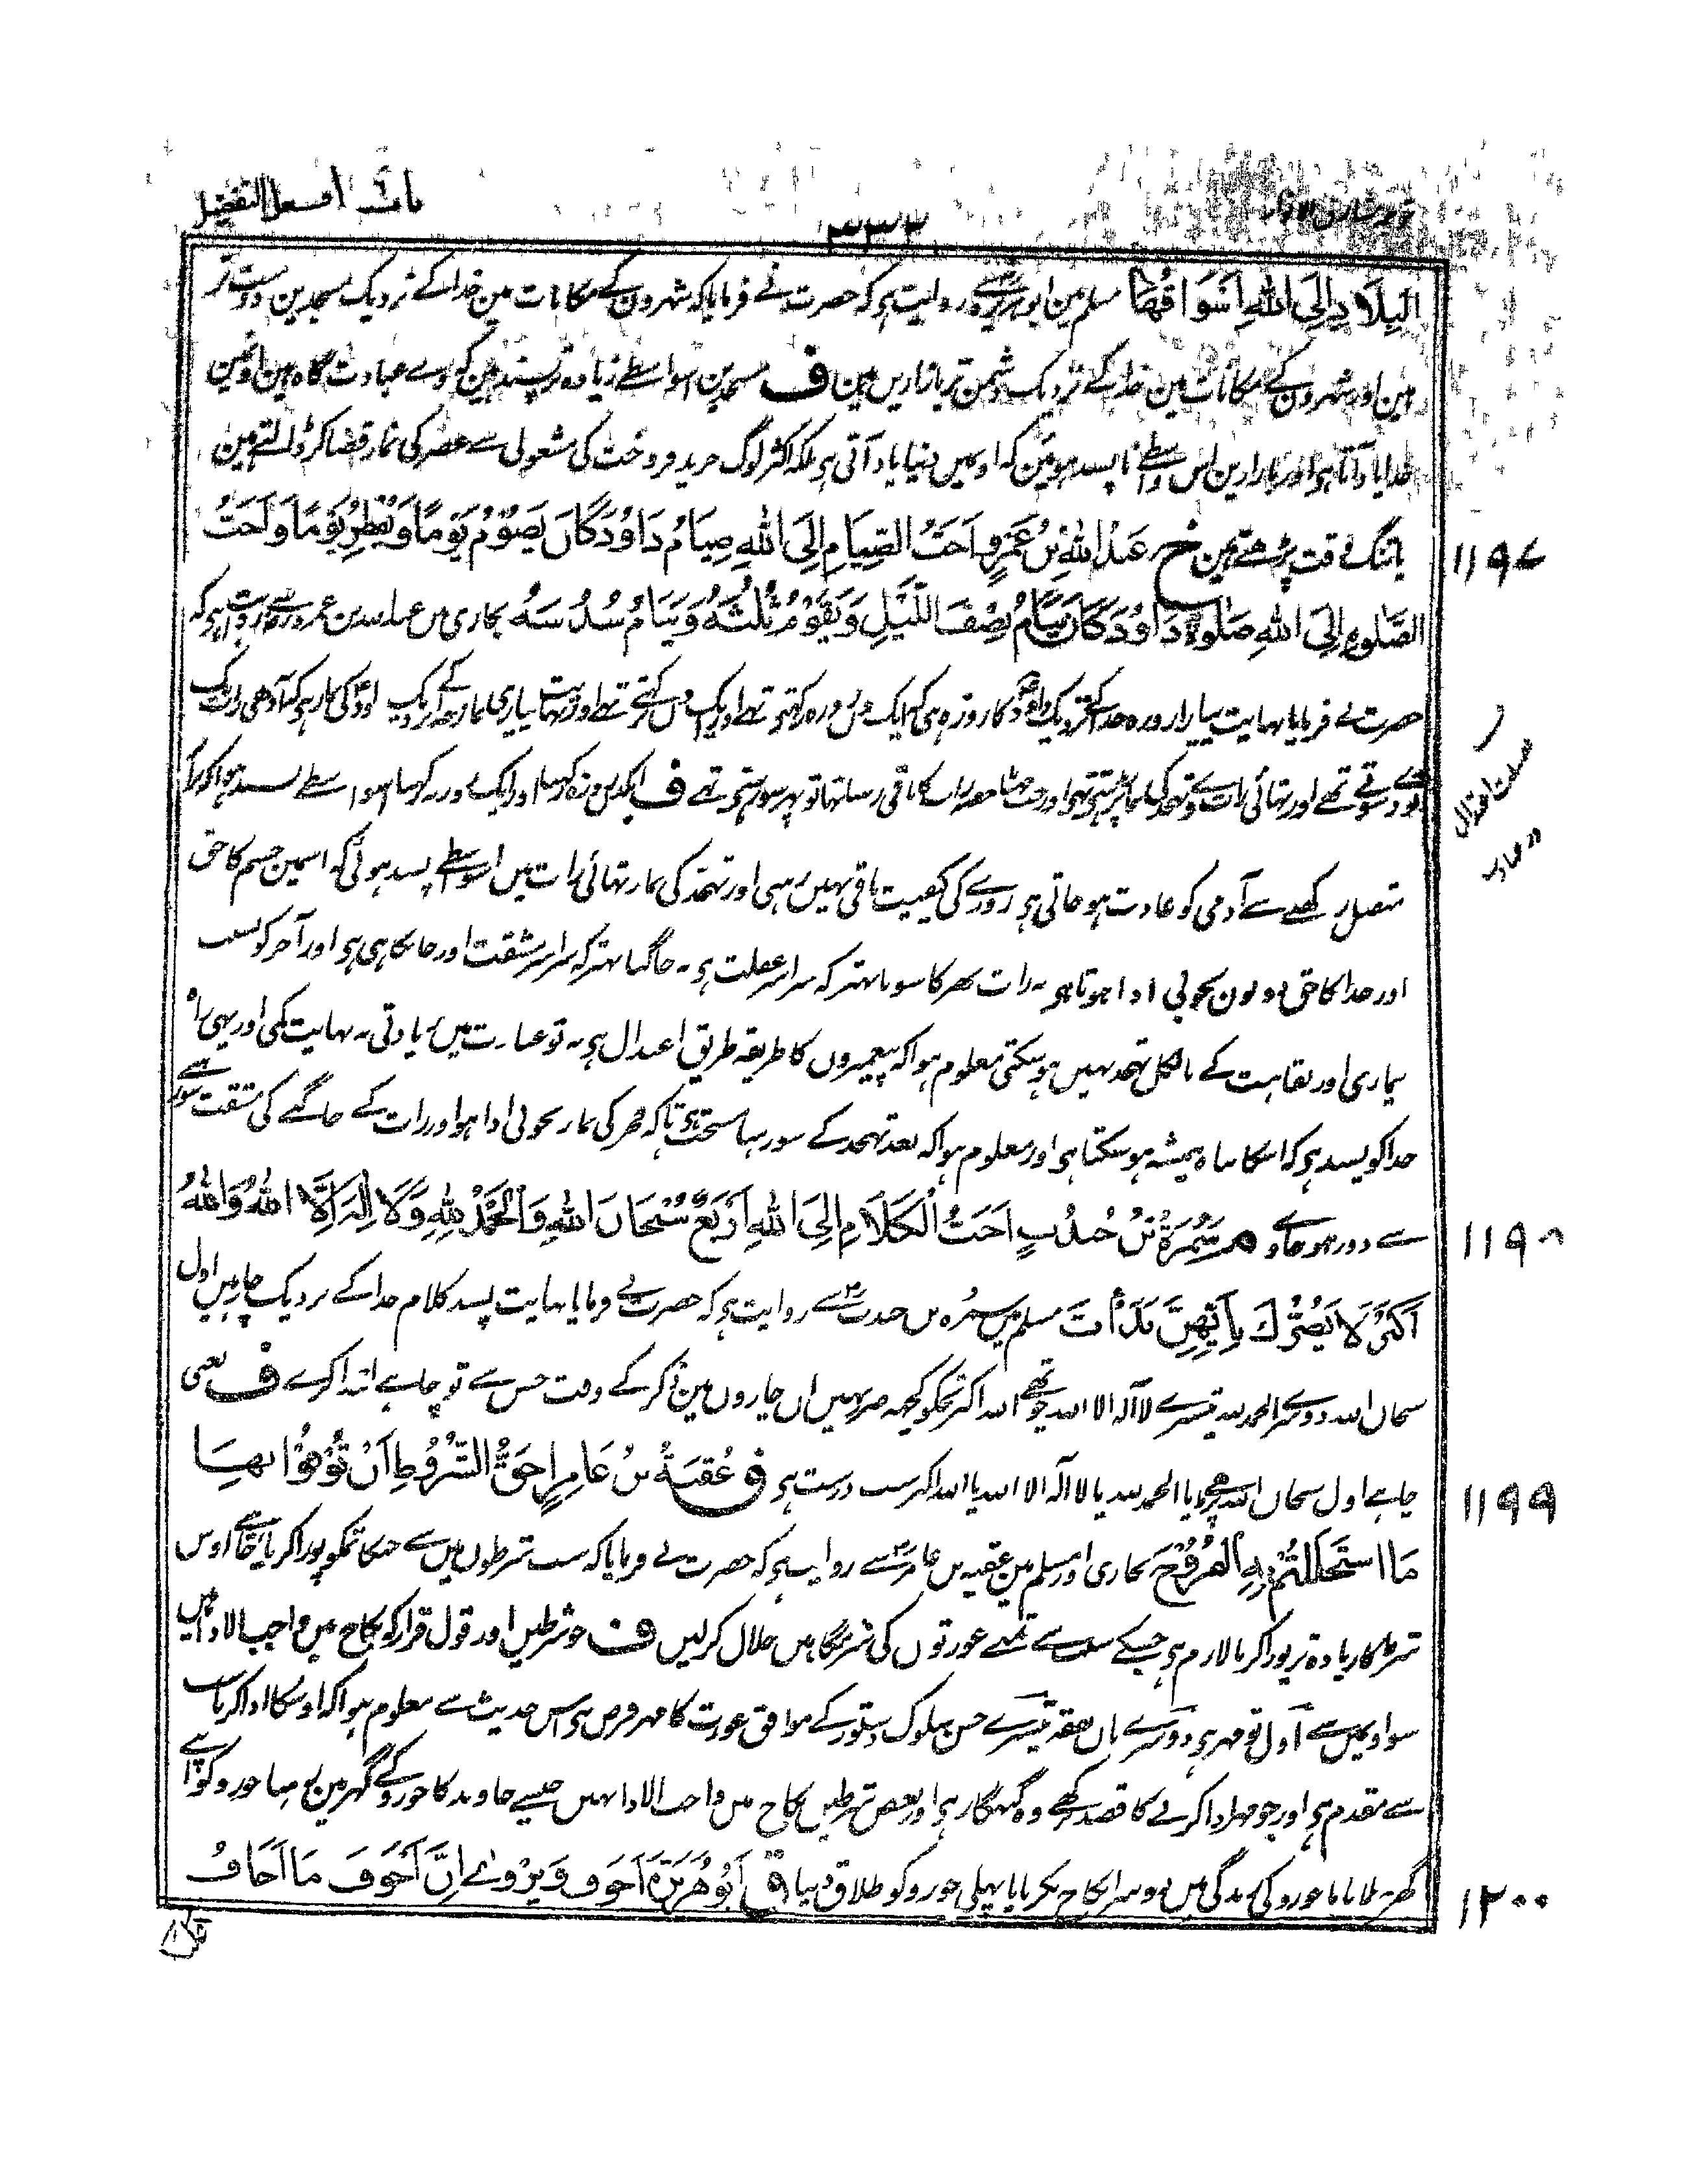 باب افعل التفضيل
۳۳۳
مشارق الانوار
البِلَادِ اِلَى اللهِ اَسْوَاقُهَا مسلم مین ابو ہریرہ سے روایت ہی کہ حضرت نے فرمایا کہ شہرون کے مکانات مین خدا کے نزدیک مسجدین دوست تر
ہین اور شہرون کے مکانات مین خدا کے نزدیک دشمن تر بازاریں ہین ف مسجدین اسواسطے زیادہ تر پسند ہین کہ وے عبادت گاہ ہین اونمین
خدا یاد آتا ہی اور بازارین اس واسطے ناپسند ہوئین کہ اونمیں دنیا یاد آتی ہی بلکہ اکثر لوگ خرید فروخت کی مشغولی سے عصر کی نماز قضا کر ڈالتے ہین
یا تنگ وقت پڑھتے ہین خ عَبْدُ اللهِ بْنُ عَمْرٍو اَحَبُّ الصِّيَامِ اِلَى اللهِ صِيَامُ دَاوُدَ كَانَ يَصُوْمُ يَوْمًا وَيُفْطِرُ يَوْمًا وَاَحَبُّ
۱۱۹۷
الصَّلٰوةِ اِلَى اللهِ صَلٰوةُ دَاوُدَ كَانَ يَنَامُ نِصْفَ اللَّيْلِ وَيَقُوْمُ ثُلُثَهُ وَيَنَامُ سُدُسَهُ بخاری میں عبد اللہ بن عمرو سے روایت ہی کہ
حضرت نے فرمایا نہایت پیارا روزہ خدا کے نزدیک داؤد کا روزہ ہی کہ ایک دن روزہ رکھتے تھے اور ایک دن نہ رکھتے تھے اور نہایت پیاری نماز خدا کے نزدیک داؤد کی نماز ہی کہ آدھی رات تک
وے سوتے تھے اور تہائی رات تہجد کی نماز پڑھتے تھے اور جب چھٹا حصہ رات کا باقی رہتا تھا تو پھر سو رہتے تھے ف ایکدن روزہ رکھنا اور ایک روز نہ رکھنا اسواسطے پسند ہوا کہ
متصل رکھنے سے آدمی کو عادت ہو جاتی ہی روزے کی کیفیت باقی نہیں رہتی اور تہجد کی نماز تہائی رات میں اسواسطے پسند ہوئی کہ اسمین جسم کا حق
اور خدا کا حق دونون بخوبی ادا ہوتا ہی نہ رات بھر کا سونا بہتر کہ سراسر غفلت ہی نہ جاگنا بہتر کہ سراسر مشقت اور جانکاہی ہی اور آخر کو بسبب
بیماری اور نقاہت کے بالکل تہجد نہیں ہو سکتی معلوم ہوا کہ پیغمبروں کا طریقہ طریق اعتدال ہی نہ تو عبادت میں زیادتی نہ نہایت کمی اور یہی راہ
خدا کو پسند ہی کہ اسکا نباہ ہمیشہ ہو سکتا ہی اور معلوم ہوا کہ بعد تہجد کے سو رہنا مستحب ہی تاکہ فجر کی نماز بخوبی ادا ہو اور رات کے جاگنے کی مشقت سونے
سے دور ہو جاوے م سَمُرَةُ بْنُ جُنْدُبٍ اَحَبُّ الْكَلَامِ اِلَى اللهِ اَرْبَعٌ سُبْحَانَ اللهِ وَالْحَمْدُ لِلهِ وَلَا اِلٰهَ اِلَّا اللهُ وَاللهُ
۱۱۹۸
اَكْبَرُ لَا يَضُرُّكَ بِاَيِّهِنَّ بَدَأْتَ مسلم میں سمرہ بن جندب سے روایت ہی کہ حضرت نے فرمایا نہایت پسند کلام خدا کے نزدیک چار ہیں اول
سبحان اللہ دوسرے الحمد للہ تیسرے لا الہ الا اللہ چوتھے اللہ اکبر تجکو کچھ ضرر نہیں ان چاروں مین ذکر کے وقت جس سے تو چاہے ابتدا کرے ف یعنی
چاہے اول سبحان اللہ کہے یا الحمد للہ یا لا الہ الا اللہ یا اللہ اکبر سب درست ہی ق عُقْبَةُ بْنُ عَامِرٍ اَحَقُّ الشُّرُوْطِ اَنْ تُوْفُوْا بِهَا
۱۱۹۹
مَا اسْتَحْلَلْتُمْ بِهِ الْفُرُوْجَ بخاری اور مسلم مین عقبہ بن عامر سے روایت ہی کہ حضرت نے فرمایا کہ سب شرطوں میں سے جنکا تمکو پورا کرنا چاہئے اوس
شرط کا زیادہ تر پورا کرنا لازم ہی جسکے سبب سے تمنے عورتوں کی شرمگاہیں حلال کر لیں ف جو شرطیں اور قول قرار کہ نکاح مین واجب الادا ہیں
سو اونمیں سے اول تو مہر ہی دوسرے نان نفقہ تیسرے حسن سلوک دستور کے موافق عورت کا مہر فرض ہی اس حدیث سے معلوم ہوا کہ اوسکا ادا کرنا سب
سے مقدم ہی اور جو مہر ادا کرنے کا قصد نہ رکھے وہ گنہگار ہی اور بعض شرطیں نکاح میں واجب الادا نہیں جیسے خاوند کا جورو کے گھر مین رہنا جورو کو اپنے
گھر نہ لانا یا جورو کی زندگی میں دوسرا نکاح نکرنا یا پہلی جورو کو طلاق دینا ق اَبُوْ هُرَيْرَةَ اَخْوَفُ وَيُرْوٰى اِنَّ اَخْوَفَ مَا اَخَافُ
۱۲۰۰